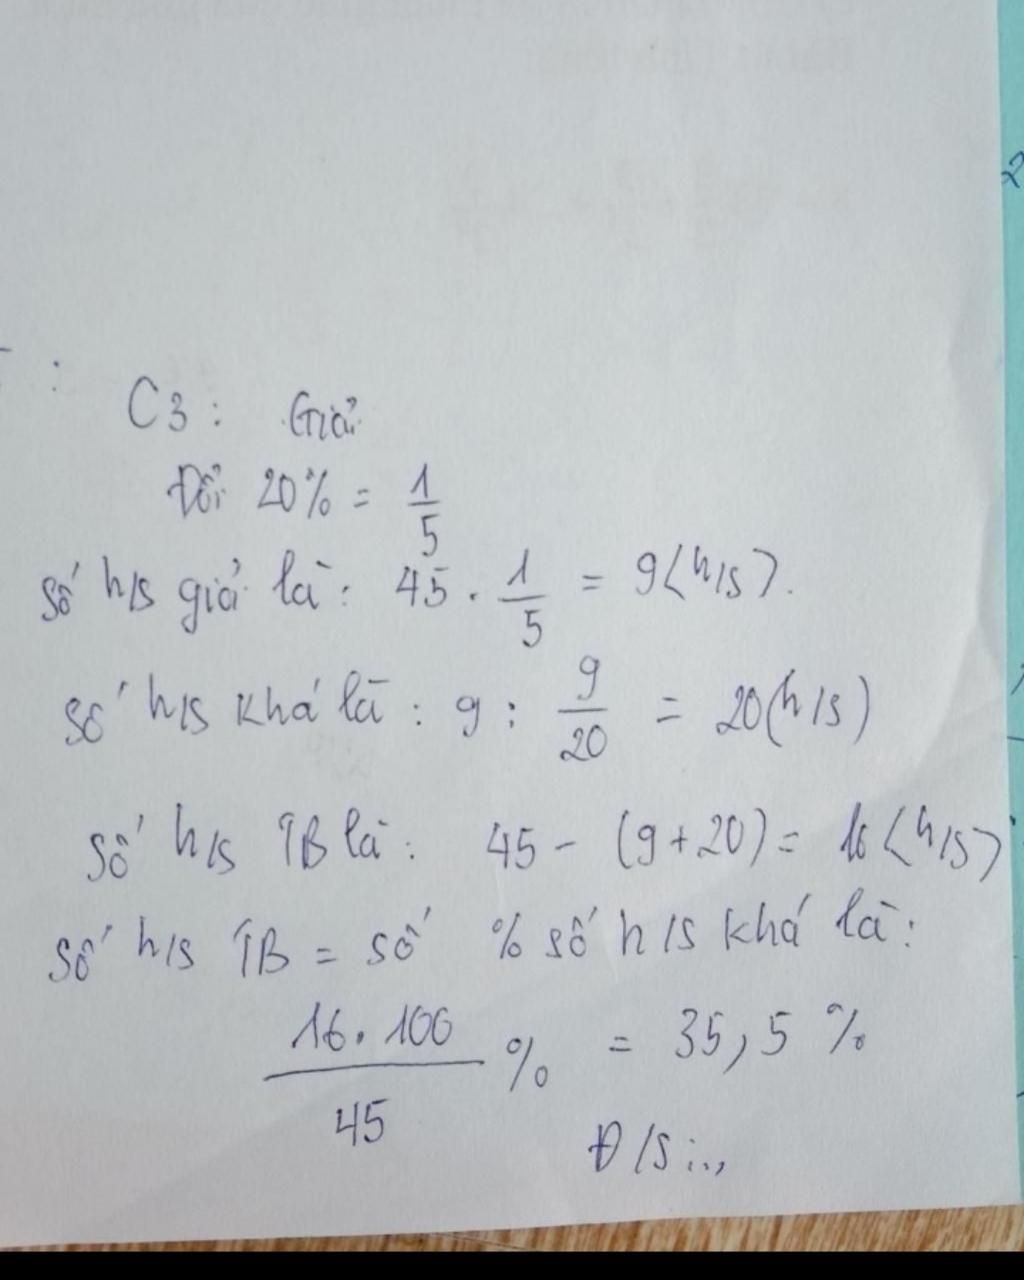 C3: Giải
Đổi 20% = 1/5
Số h/s giỏi là: 45 . 1/5 = 9<h/s>.
Số h/s khá là: 9 : 9/20 = 20(h/s)
Số h/s TB là: 45 - (9+20) = 16<h/s>
Số h/s TB = số % số h/s khá là:
16.100/45 % = 35,5 %
Đ/S:..,